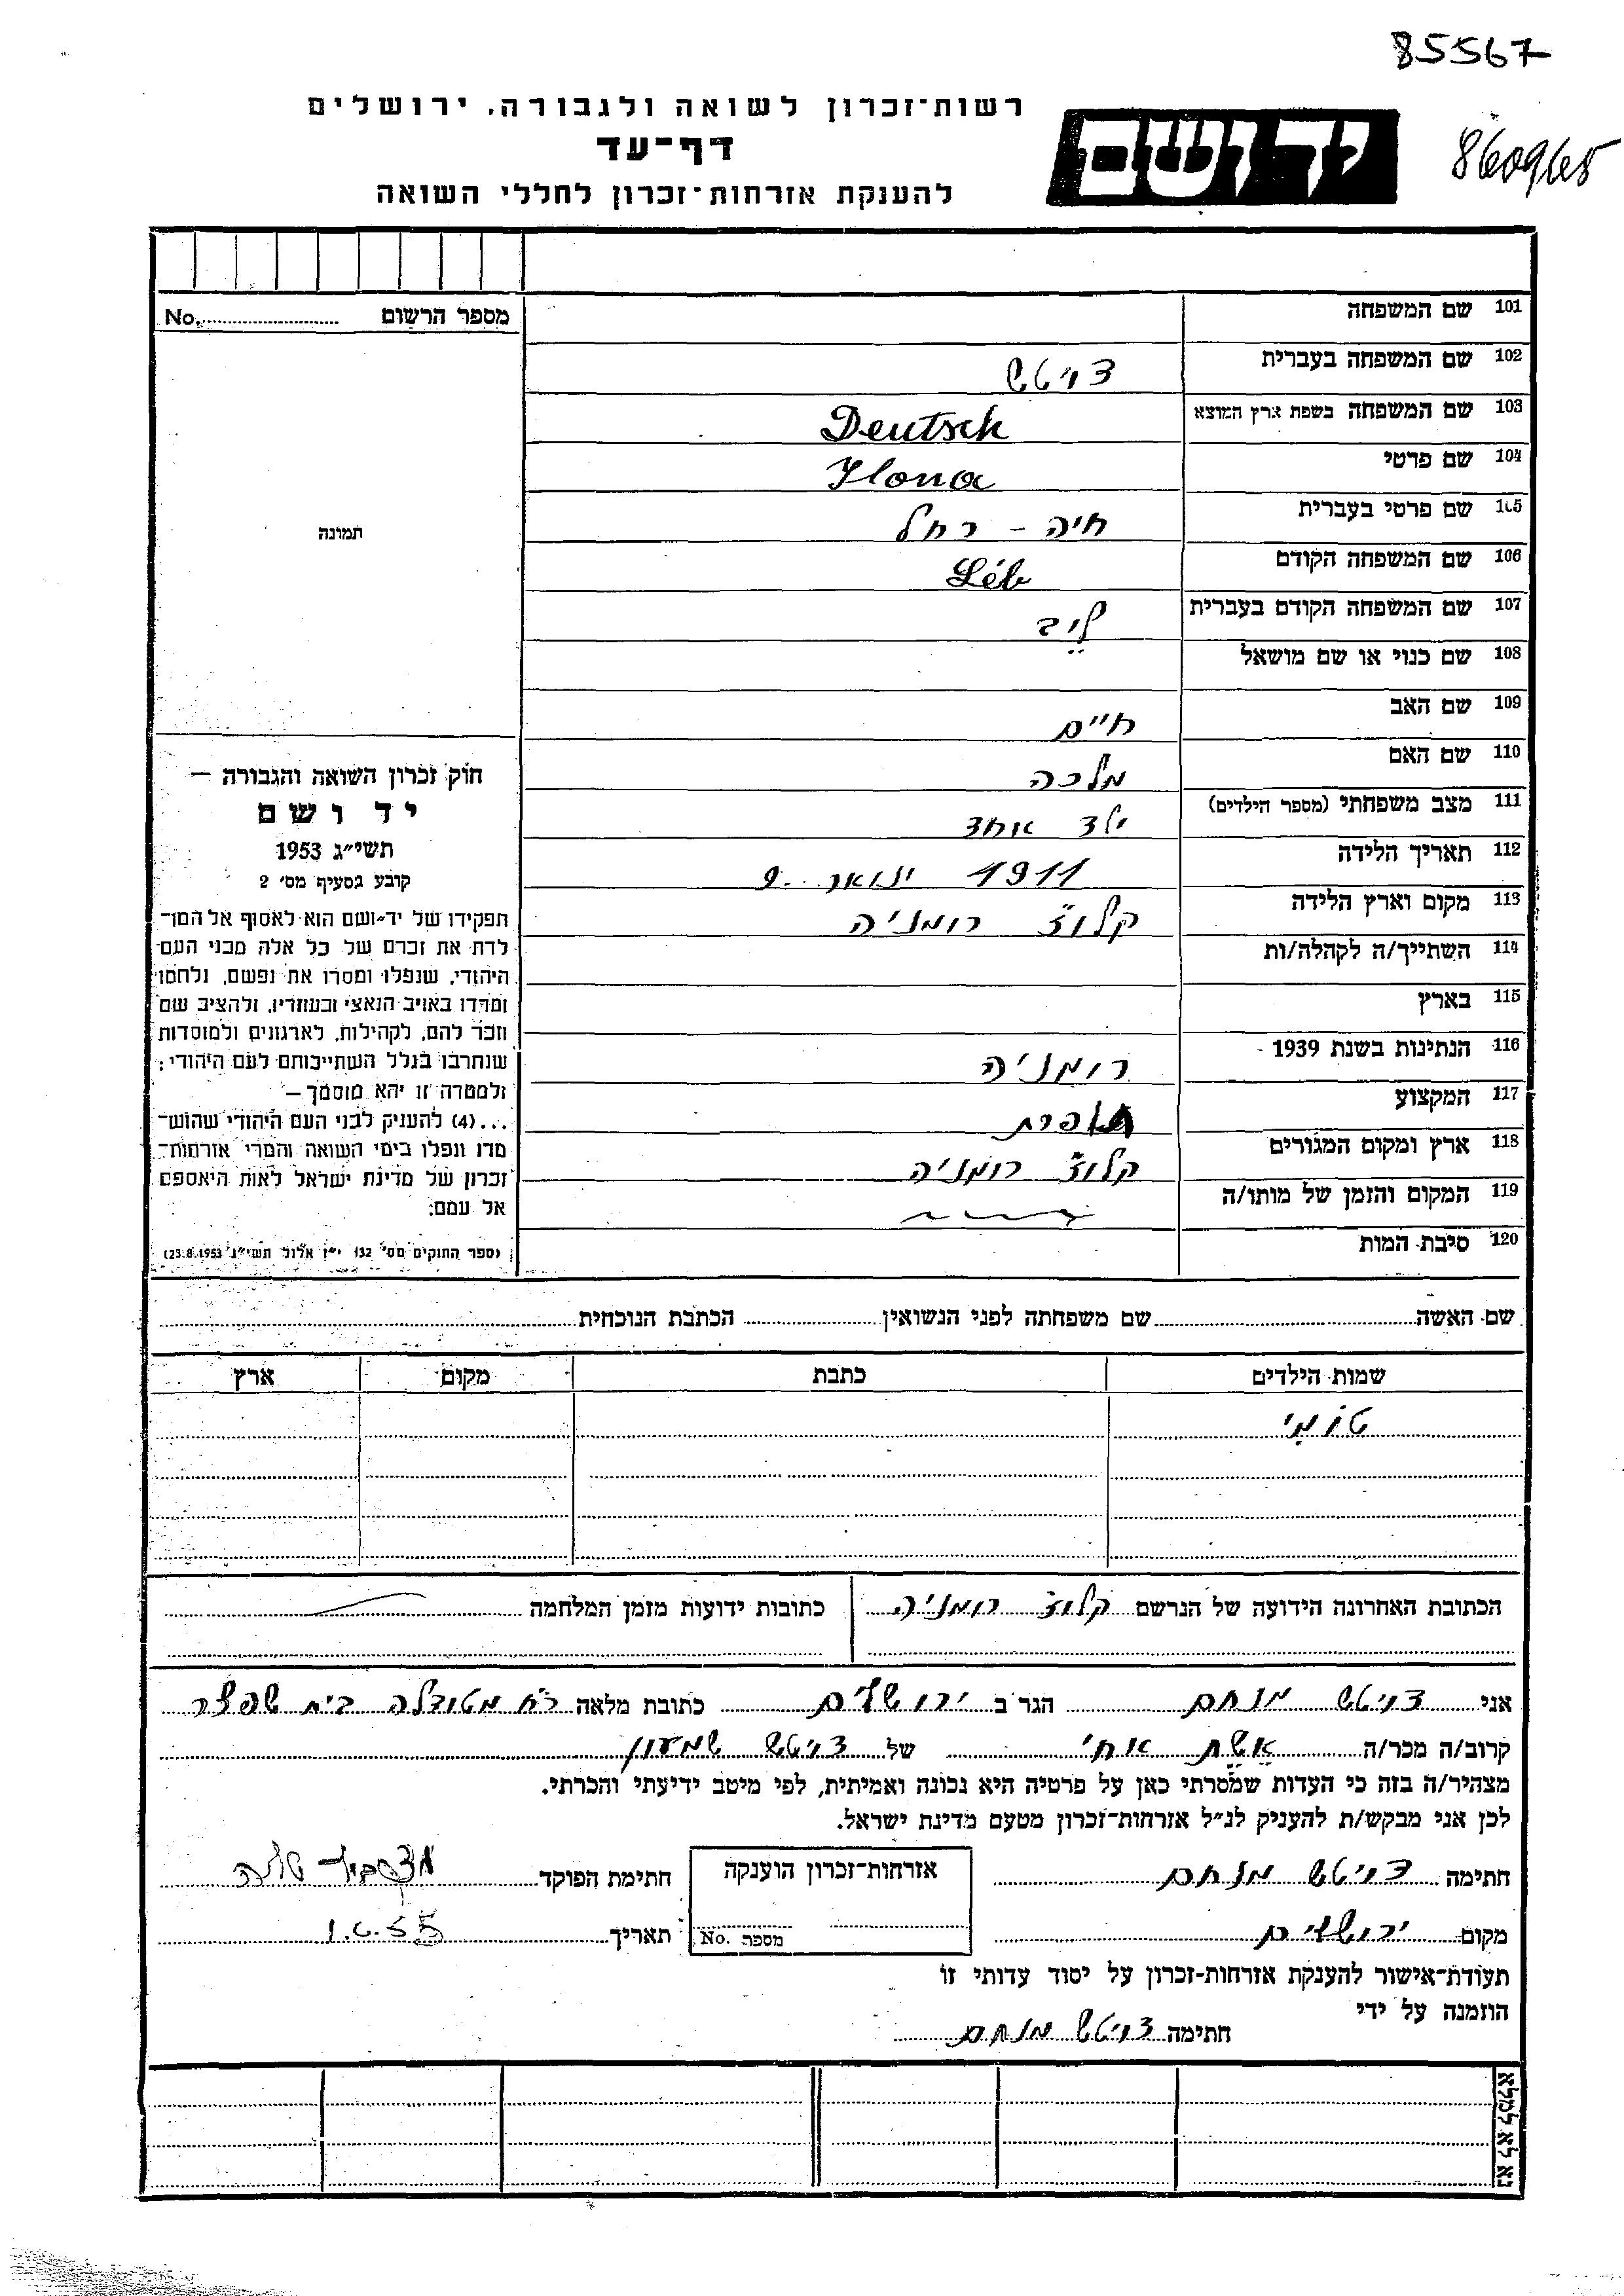 85567
860965
יד ושם
רשות־זכרון לשואה ולגבורה, ירושלים
דף־עד
להענקת אזרחות־זכרון לחללי השואה
מספר הרשום ........ No.
תמונה
101 שם המשפחה
102 שם המשפחה בעברית דויטש
103 שם המשפחה בשפת ארץ המוצא Deutsch
104 שם פרטי Ilona
105 שם פרטי בעברית חיה - רחל
106 שם המשפחה הקודם Léb
107 שם המשפחה הקודם בעברית לייב
108 שם כנוי או שם מושאל
109 שם האב חיים
110 שם האם מלכה
111 מצב משפחתי (מספר הילדים) ילד אחד
112 תאריך הלידה 1911 ינואר 9
113 מקום וארץ הלידה קלוז' רומניה
114 השתייך/ה לקהלה/ות
115 בארץ
116 הנתינות בשנת 1939 רומניה
117 המקצוע תופרת
118 ארץ ומקום המגורים קלוז' רומניה
119 המקום והזמן של מותו/ה
120 סיבת המות
חוק זכרון השואה והגבורה —
יד ושם
תשי״ג 1953
קובע בסעיף מס' 2
תפקידו של יד־ושם הוא לאסוף אל המו־
לדת את זכרם של כל אלה מבני העם
היהודי, שנפלו ומסרו את נפשם, נלחמו
ומרדו באויב הנאצי ובעוזריו, ולהציב שם
וזכר להם, לקהילות, לארגונים ולמוסדות
שנחרבו בגלל השתייכותם לעם היהודי:
ולמטרה זו יהא מוסמך —
...(4) להעניק לבני העם היהודי שהוש־
מדו ונפלו בימי השואה והמרי אזרחות־
זכרון של מדינת ישראל לאות היאספם
אל עמם:
(ספר החוקים מס' 132 י״ז אלול תשי״ג 23.8.1953)
שם האשה ........ שם משפחתה לפני הנשואין ........ הכתבת הנוכחית ........
שמות הילדים כתבת מקום ארץ
טומי
הכתובת האחרונה הידועה של הנרשם קלוז' רומניה כתובות ידועות מזמן המלחמה
אני דויטש מנחם הגר ב ירושלים כתובת מלאה רח מטודלה בית שפצר
קרוב/ה מכר/ה אשת אחי של דויטש שמעון
מצהיר/ה בזה כי העדות שמסרתי כאן על פרטיה היא נכונה ואמיתית, לפי מיטב ידיעתי והכרתי.
לכן אני מבקש/ת להעניק לנ״ל אזרחות־זכרון מטעם מדינת ישראל.
חתימה דויטש מנחם אזרחות־זכרון הוענקה חתימת הפוקד
מקום ירושלים מספר No. תאריך
תעודת־אישור להענקת אזרחות־זכרון על יסוד עדותי זו
הוזמנה על ידי
חתימה דויטש מנחם
נא לא למלא